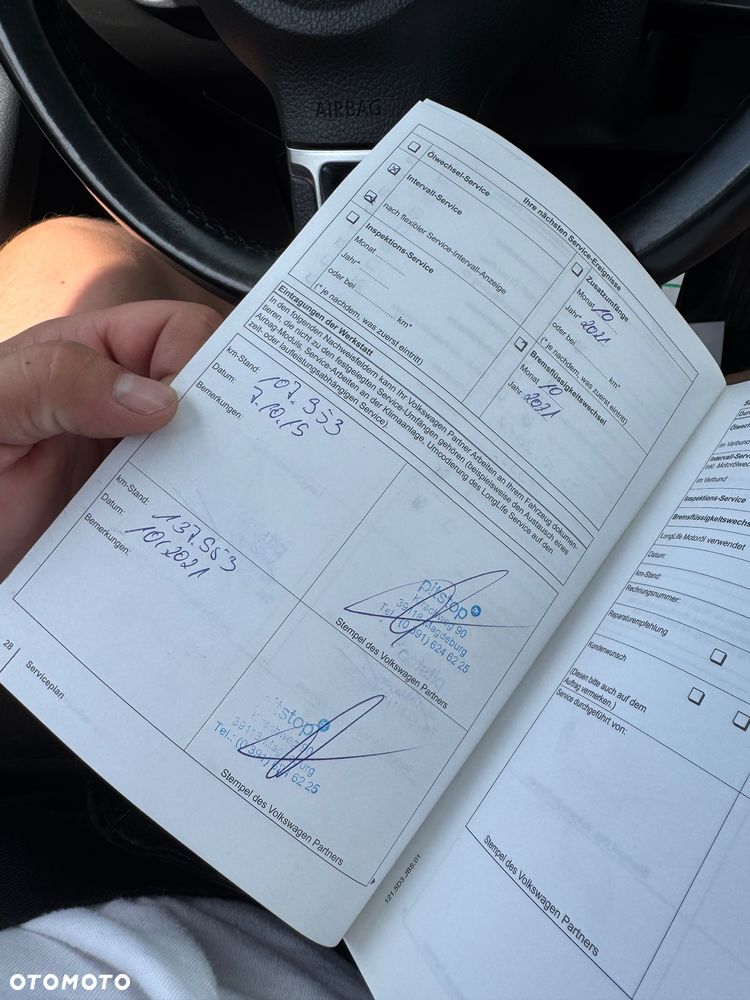 AIRBAG
Ihre nächsten Service-Ereignisse
Ölwechsel-Service
Intervall-Service
nach flexibler Service-Intervall-Anzeige
Inspektions-Service
Monat ............
Jahr* ............
oder bei ............ km*
(*je nachdem, was zuerst eintritt)
Zusatzumfänge
Monat 10
Jahr* 2021
oder bei ............ km*
(*je nachdem, was zuerst eintritt)
Bremsflüssigkeitswechsel
Monat 10
Jahr 2021
Eintragungen der Werkstatt
In den folgenden Nachweisfeldern kann Ihr Volkswagen Partner Arbeiten an Ihrem Fahrzeug dokumen-
tieren, die nicht zu den festgelegten Service-Umfängen gehören (beispielsweise den Austausch eines
Airbag-Moduls, Service-Arbeiten an der Klimaanlage, Umcodierung des LongLife Service auf den
zeit- oder laufleistungsabhängigen Service).
km-Stand: 107.953
Datum: 7.10.19
Bemerkungen:
pitstop
Kirschweg 90
39118 Magdeburg
Tel.: (0 391) 624 62 25
Stempel des Volkswagen Partners
km-Stand: 137.953
Datum: 10/2021
Bemerkungen:
pitstop
Kirschweg 90
39118 Magdeburg
Tel.: (0 391) 624 62 25
Stempel des Volkswagen Partners
28
Serviceplan
121.5D3.JBS.01
im Verbund
Intervall-Serv
im Verbund
Inspektions-Service
Bremsflüssigkeitswechs
LongLife Motoröl verwendet
Datum:
km-Stand:
Rechnungsnummer:
Reparaturempfehlung
Kundenwunsch
(Diesen bitte auch auf dem
Auftrag vermerken.)
Service durchgeführt von:
Stempel des Volkswagen Partners
OTOMOTO